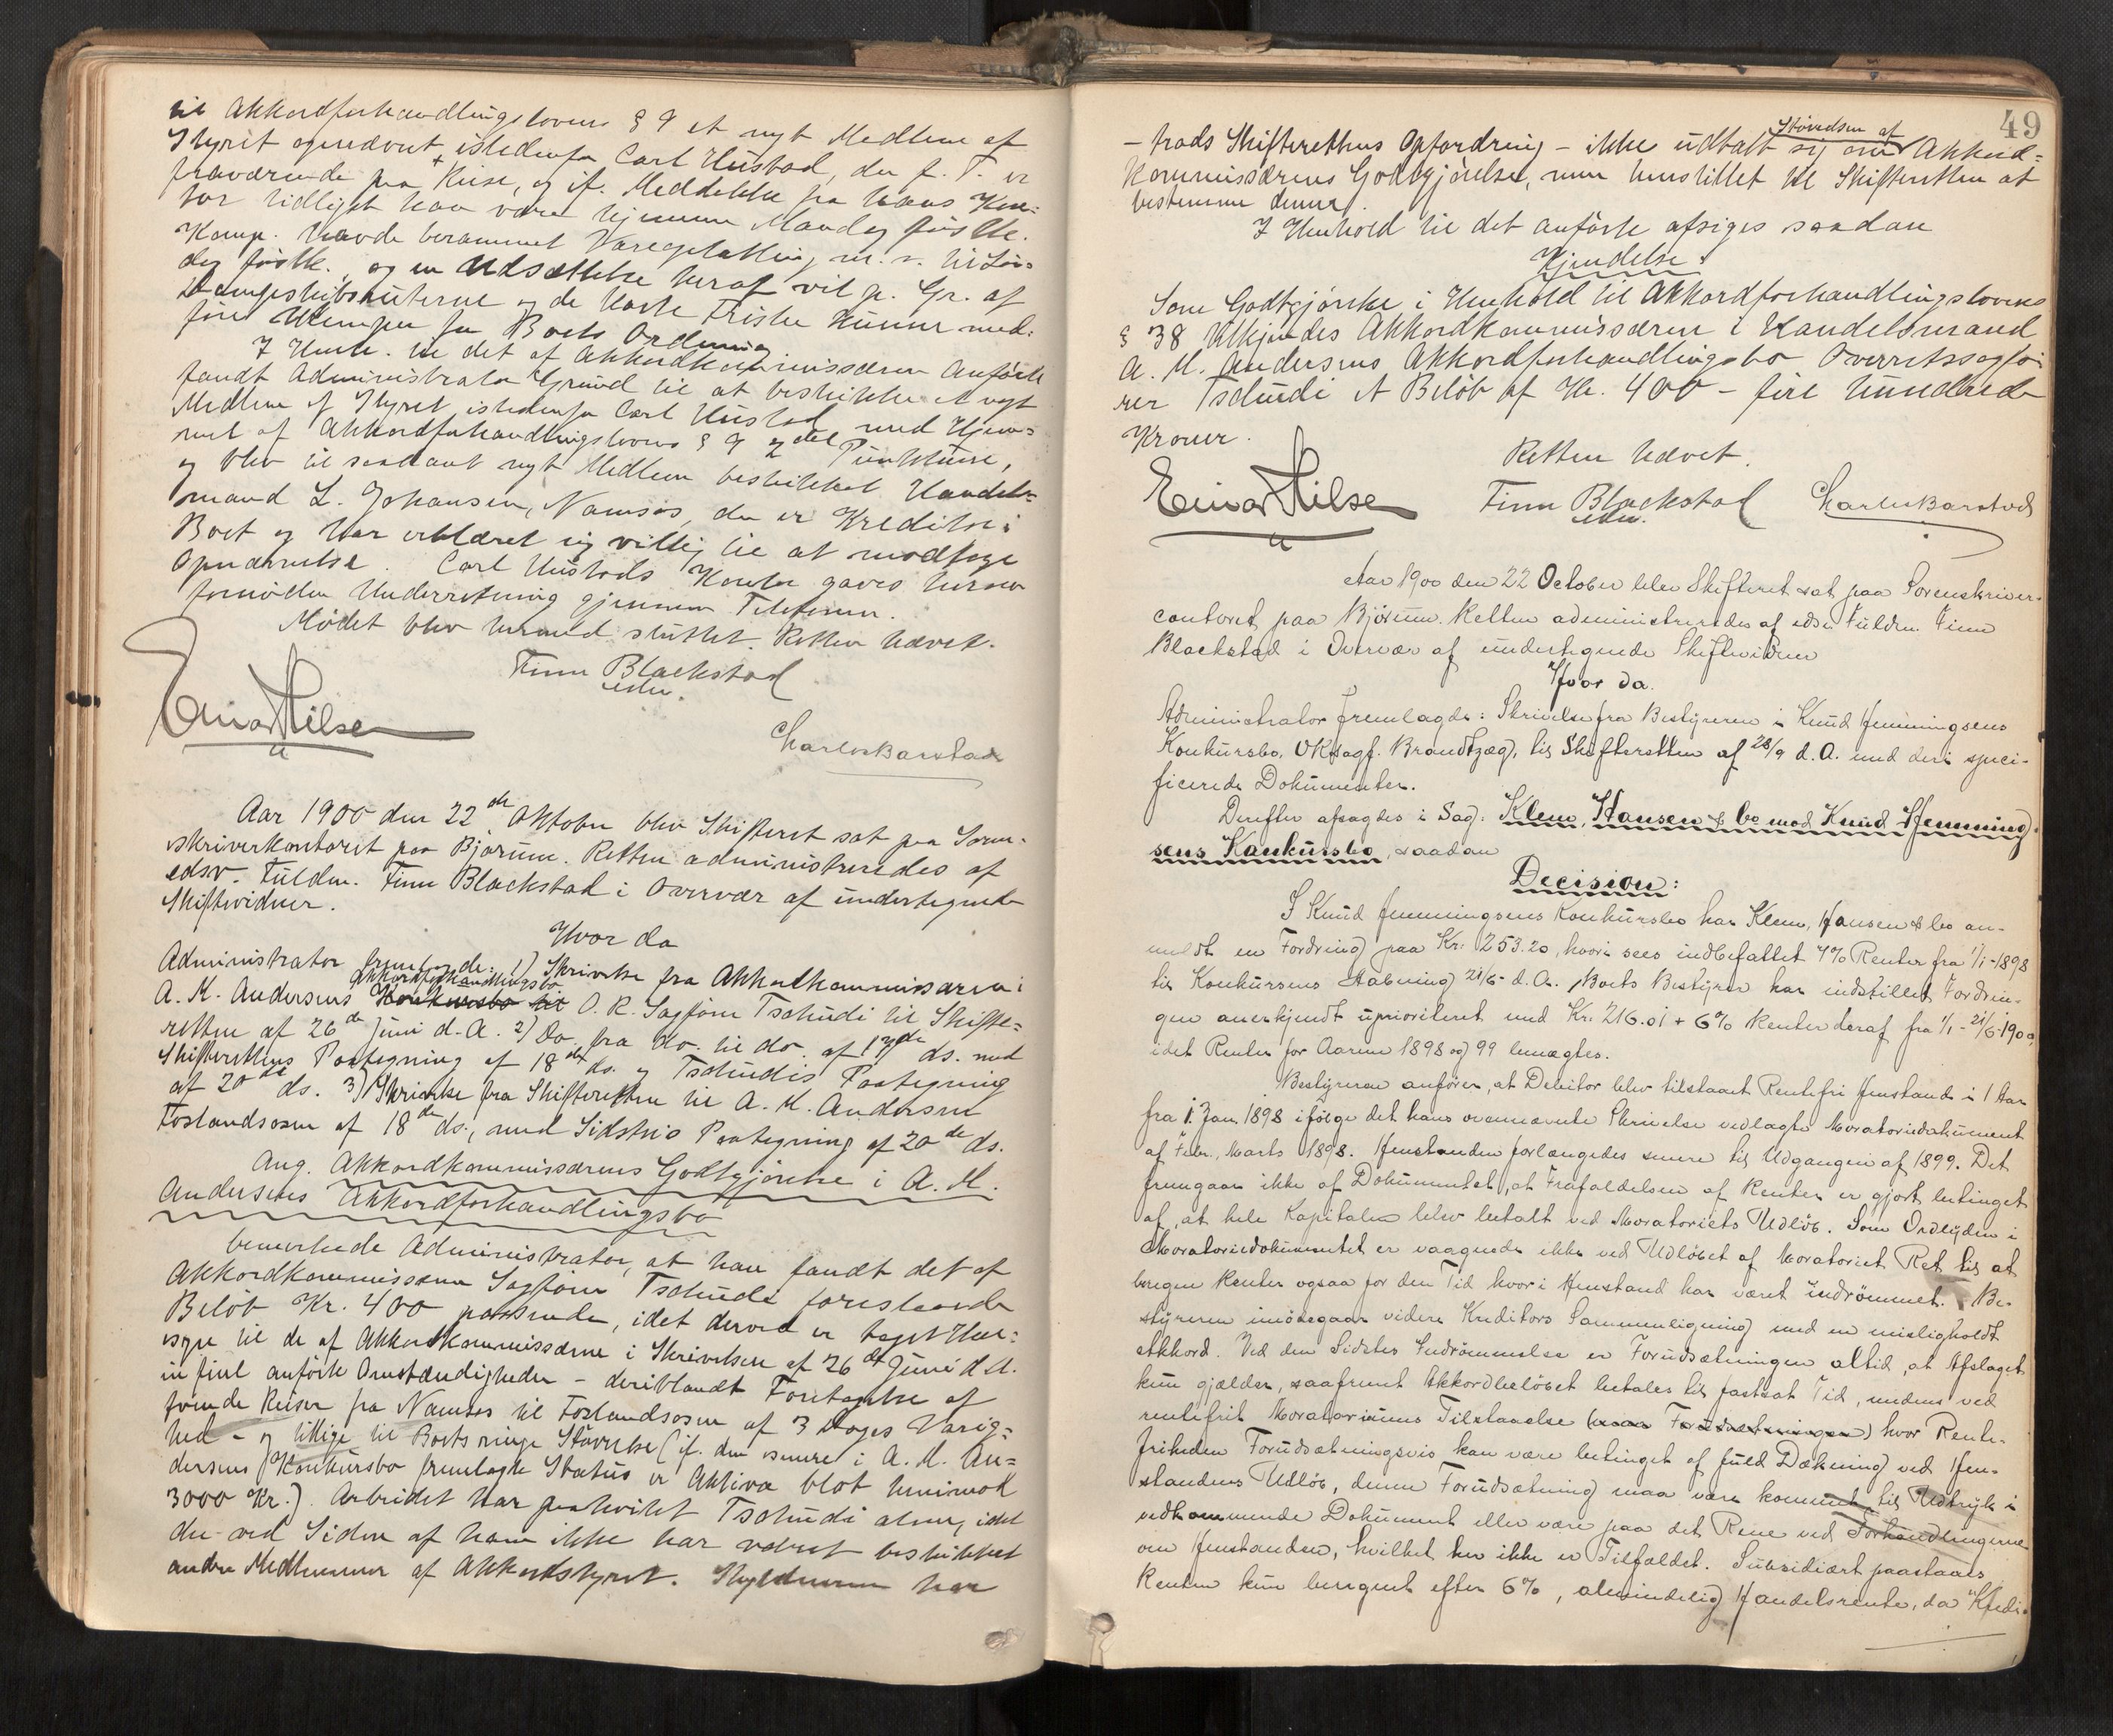 til Akkordforhandlingslovens § 9 et nyt Medlem af
Styret opnævnt istedenfor Carl Hustad, der f. T. er
fraværende paa Reise, og if. Meddelelse fra hans Kon-
tor tidligst kan være hjemme Mandag førstk.
Komp. havde berammet Varegetakling m. v. til Lør-
dag førstk., og en Udsættelse heraf vil p. Gr. af
Dampskibsruterne og de korte Frister kunne med-
føre Ulemper for Boets Ordning
I Henh. til det af Akkordkommissæren anførte
fandt Administrator Grund til at beskikke et nyt
Medlem af Styret istedenfor Carl Hustad med Hjem-
mel af Akkordforhandlingslovens § 9 2det Punktum,
og blev til saadant nyt Medlem beskikket Handels-
mand L. Johansen, Namsos, der er Kreditor i
Boet og har erklæret sig villig til at modtage
Opnævnelse. Carl Hustads Kontor gaves herom
fornøden Underretning gjennem Telefonen.
Mødet blev hermed sluttet. Retten hævet.
Finn Blackstad
edsv.
Einar Hilsen
Charles Barstad
Aar 1900 den 22de Oktober blev Skifteret sat paa Soren-
skriverkontoret paa Bjørum. Retten administreredes af
edsv. Fuldm. Finn Blackstad i Overvær af undertegnede
Skiftevidner.
Hvor da
Administrator fremlagde: 1) Skrivelse fra Akkordkommissæren i
Akkordforhandlingsbo
A. M. Andersens Konkursbo til O. R. Sagfører Tschudi til Skifte-
retten af 26de Juni d. A. 2) Do. fra do. til do. af 17de ds. med
Skifterettens Paategning af 18de ds. og Tschudis Paategning
af 20de ds. 3) Skrivelse fra Skifteretten til A. M. Andersen
Foslandsosen af 18de ds., med Sidstnis Paategning af 20de ds.
Ang. Akkordkommissærens Godtgjørelse i A. M.
Andersens Akkordforhandlingsbo
bemerkede Administrator, at han fandt det af
Akkordkommissæren Sagfører Tschudi foreslaaede
Beløb Kr. 400 passende, idet derved er taget Hen-
syn til de af Akkordkommissæren i Skrivelsen af 26de Juni d. A.
in fine anførte Omstændigheder - deriblandt Foretagelse af
tvende Reiser fra Namsos til Foslandsosen af 3 Dages Varig-
hed - og tillige til Boets ringe Størrelse (if. den senere i A. M. An-
dersens Konkursbo fremlagte Status er Aktiva blot henimod
3000 Kr.). Arbeidet har paahvilet Tschudi alene, idet
der ved Siden af ham ikke har været beskikket
andre Medlemmer af Akkordstyret. Skyldneren har
49
Størrelsen af
- trods Skifterettens Opfordring - ikke udtalt sig om Akkord-
kommissærens Godtgjørelse, men henstillet til Skifteretten at
bestemme denne.
I Henhold til det anførte afsiges saadan
Kjendelse:
Som Godtgjørelse i Henhold til Akkordforhandlingslovens
§ 38 tilkjendes Akkordkommissæren i Handelsmand
A. M. Andersens Akkordforhandlingsbo Overretssagfø-
rer Tschudi et Beløb af Kr. 400 - fire hundrede
Kroner.
Retten hævet.
Einar Hilsen
Finn Blackstad
edsv.
Charles Barstad
Aar 1900 den 22 October blev Skifteret sat paa Sorenskriver-
contoret paa Bjørum. Retten administreredes af edsv. Fuldm. Finn
Blackstad i Overvær af undertegnede Skiftevidner
Hvor da.
Administrator fremlagde: Skrivelse fra Bestyreren i Knud Hemmingsens
Konkursbo, ORsagf. Brandtzæg, til Skifteretten af 28/9 d. A. med deri speci-
ficerede Dokumenter.
Derefter afsagdes i Sag: Klem, Hansen & Co mod Knud Hemming-
sens Konkursbo, saadan
Decision:
I Knud Hemmingsens Konkursbo har Klem, Hansen & Co an-
meldt en Fordring paa Kr: 253.20, hvori sees indbefattet 7% Renter fra 1/1-1898
til Konkursens Aabning 21/6 d. A. Boets Bestyrer har indstillet Fordrin-
gen anerkjendt uprioriteret med Kr. 216.01 + 6% Renter deraf fra 1/1 - 21/6-1900,
idet Renter for Aarene 1898 og 99 benægtes.
Bestyreren anfører, at Debitor blev tilstaaet Rentefri Henstand i 1 Aar
fra 1. Jan. 1898 ifølge det hans ovennævnte Skrivelse vedlagte Moratoriedokument
af Febr., Marts 1898. Henstanden forlængedes senere til Udgangen af 1899. Det
fremgaar ikke af Dokumentet, at Frafaldelsen af Renter er gjort betinget
af, at hele Kapitalen blev betalt ved Moratoriets Udløb. Som Ordlyden i
Moratoriedokumentet er vaagnede ikke ved Udløbet af Moratoriet Ret til at
beregne Renter ogsaa for den Tid hvori Henstand har været indrømmet. Be-
styreren imødegaar videre Kreditors Sammenligning med en misligholdt
Akkord. Ved den Sidstes Indrømmelse er Forudsætningen altid, at Afslaget
kun gjælder, saafremt Akkordbeløbet betales til fastsat Tid, medens ved
rentefrit Moratoriums Tilstaaelse (maa Forudsætningen) hvor Rente-
friheden Forudsætningsvis kan være betinget af fuld Dækning ved Hen-
standens Udløb, denne Forudsætning maa være kommet til Udtryk i
vedkommende Dokument eller være paa det Rene ved Forhandlingerne
om Henstanden, hvilket her ikke er Tilfældet. Subsidiært paastaaes
Renten kun beregnet efter 6%, almindelig Handelsrente, da Kredi-